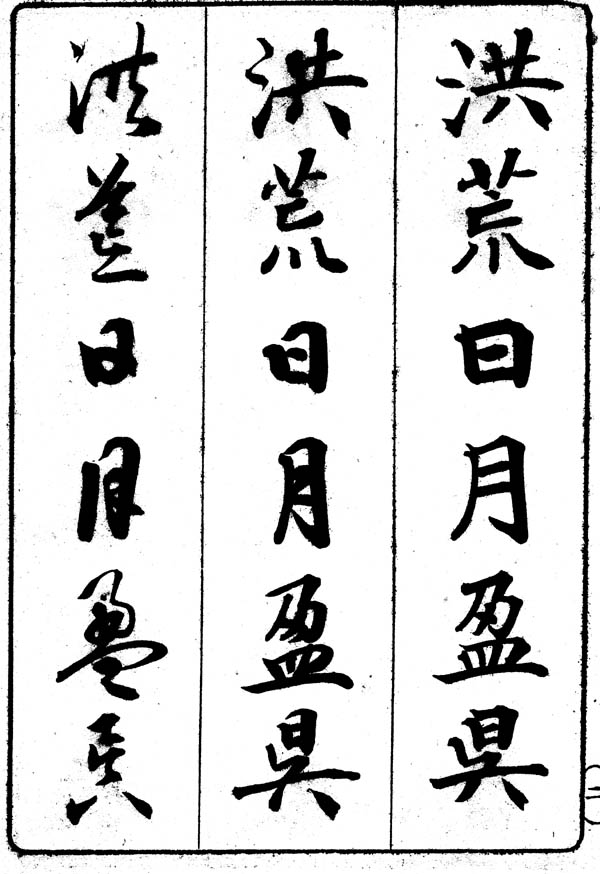 洪荒日月盈昃
洪荒日月盈昃
洪荒日月盈昃